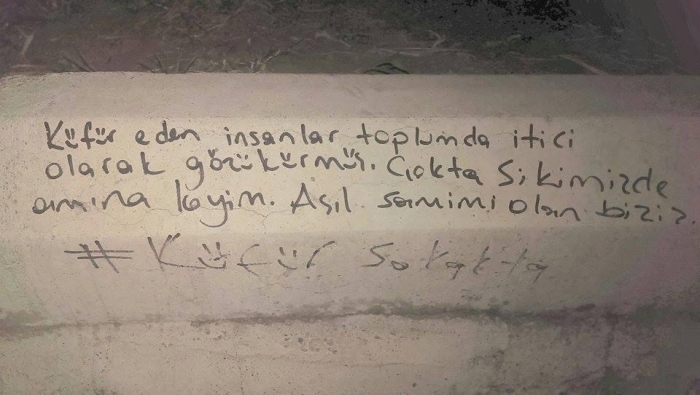 Küfür eden insanlar toplumda itici
olarak gözükürmüş. Çokta Sikimizde
amına koyim. Asıl samimi olan biziz.
#Küfür Sokakta